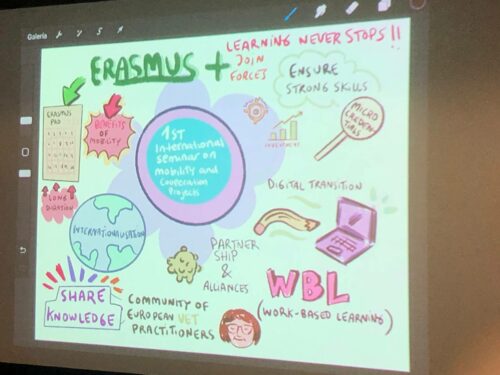 Galería
ERASMUS +
LEARNING NEVER STOPS!!
JOIN
FORCES
ENSURE
STRONG SKILLS
ERASMUS
BENEFITS
OF
MOBILITY
1ST
International
seminar on
mobility and
Cooperation
Projects
MICRO
CREDEN
LONG
DURATION
INTERNATIONALISATION
DIGITAL TRANSITION
PARTNER
SHIP
&
ALLIANCES
SHARE
KNOWLEDGE
COMMUNITY OF
EUROPEAN VET
PRACTITIONERS
WBL
(WORK-BASED LEARNING)